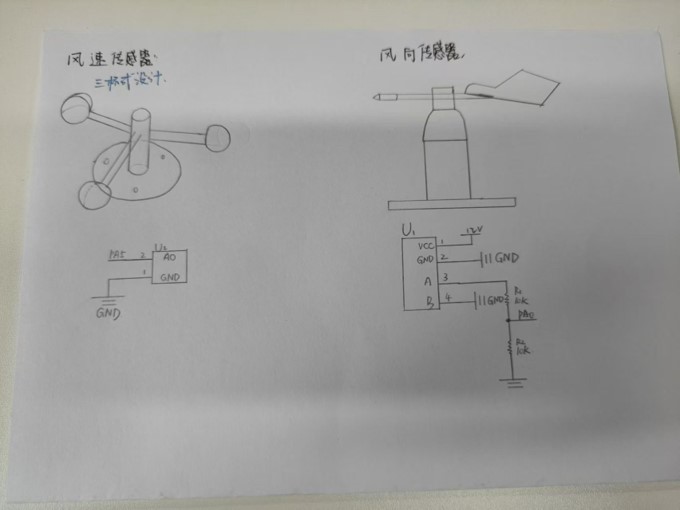 风速传感器.
三杯式设计.
PA5 2 U2 AO
1 GND
GND
风向传感器.
U1
VCC 1 12V
GND 2 GND
A 3
B 4 GND
10K
PA0
R2
10K